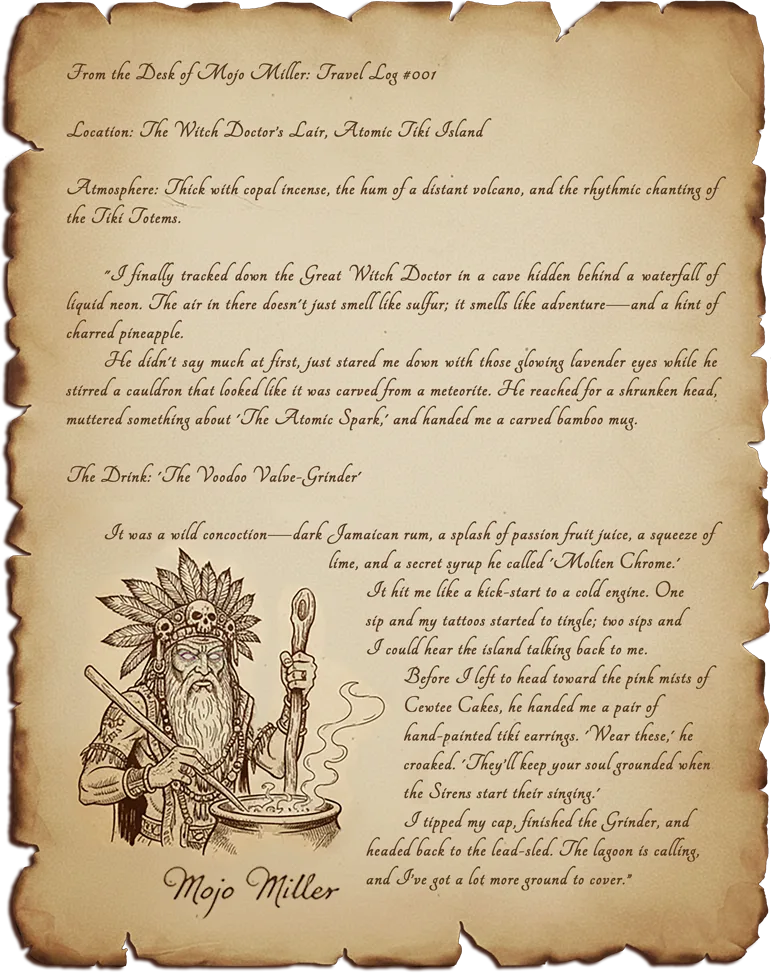 From the Desk of Mojo Miller: Travel Log #001
Location: The Witch Doctor's Lair, Atomic Tiki Island
Atmosphere: Thick with copal incense, the hum of a distant volcano, and the rhythmic chanting of
the Tiki Totems.
"I finally tracked down the Great Witch Doctor in a cave hidden behind a waterfall of
liquid neon. The air in there doesn't just smell like sulfur; it smells like adventure—and a hint of
charred pineapple.
He didn't say much at first, just stared me down with those glowing lavender eyes while he
stirred a cauldron that looked like it was carved from a meteorite. He reached for a shrunken head,
muttered something about 'The Atomic Spark,' and handed me a carved bamboo mug.
The Drink: 'The Voodoo Valve-Grinder'
It was a wild concoction—dark Jamaican rum, a splash of passion fruit juice, a squeeze of
lime, and a secret syrup he called 'Molten Chrome.'
It hit me like a kick-start to a cold engine. One
sip and my tattoos started to tingle; two sips and
I could hear the island talking back to me.
Before I left to head toward the pink mists of
Cewtee Cakes, he handed me a pair of
hand-painted tiki earrings. 'Wear these,' he
croaked. 'They'll keep your soul grounded when
the Sirens start their singing.'
I tipped my cap, finished the Grinder, and
headed back to the lead-sled. The lagoon is calling,
and I've got a lot more ground to cover."
Mojo Miller